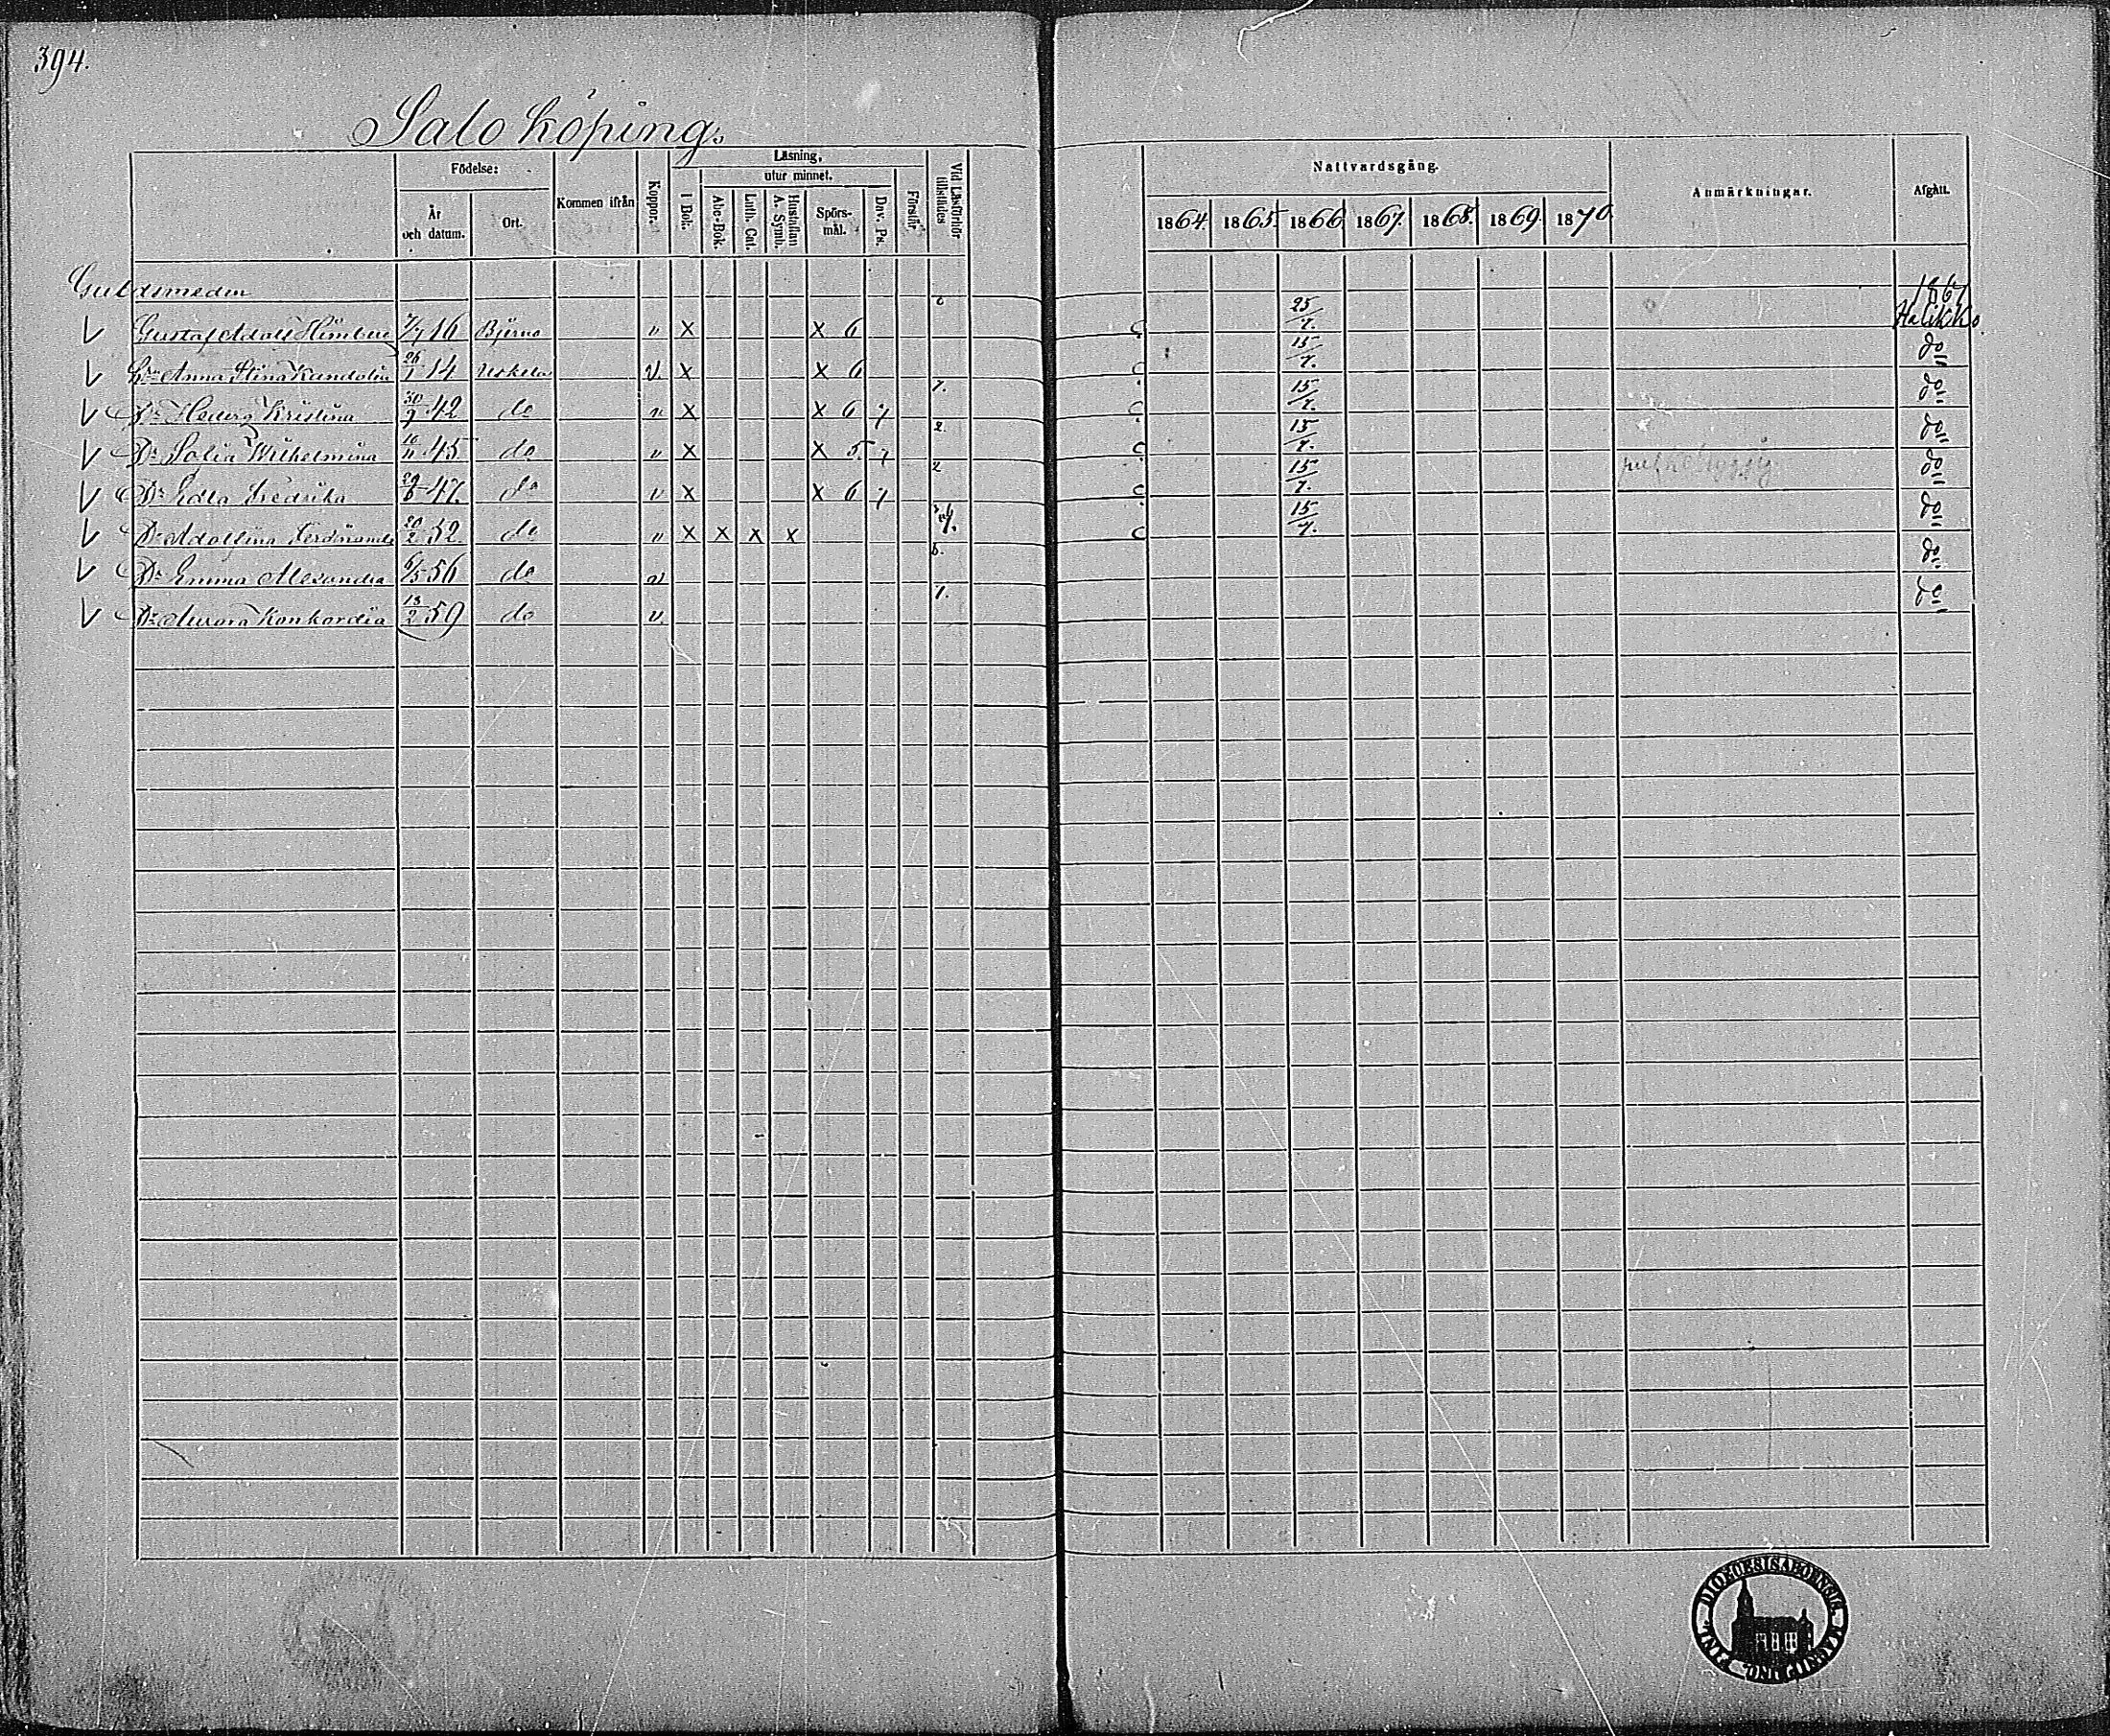 394.
Salo köping.
Födelse:
År och datum.
Ort.
Kommen ifrån
Koppor.
Läsning,
I Bok.
utur minnet.
Abc-Bok.
Luth. Cat.
Hustaflan A. Symb.
Spörs-mål.
Dav. Ps.
Förstår
Vid Läsförhör tillstädes
Nattvardsgång.
1864. 1865. 1866 1867. 1868. 1869. 1870
Anmärkningar.
Afgått.
Guldsmeden
V Gustaf Adolf Himberg 7/7 16 Bjerno v X X 6 25/7. 1867 Halikko.
V Hu Anna Stina Kandolin 26/1 14 Uskela v. X X 6 15/7. do
V Dr Hedvig Kristina 30/9 42 do v X X 6 7. 15/7. do
V Dr Solia Wilhelmina 10/11 45 do v X X 5. 2. 15/7. do
V Dr Edla Fredrika 29/6 47 do v X X 6 2 15/7. do
V Dr Adolfina 20/2 52. do v X X X X 15/7. do
V Dr Emma Alexandra 6/5 56 do v 6. do
V Dr Aurora Konkordia 13/2 59 do v 7. do
DIOECESIS ABOENSIS MAGNI DUC. FINL.